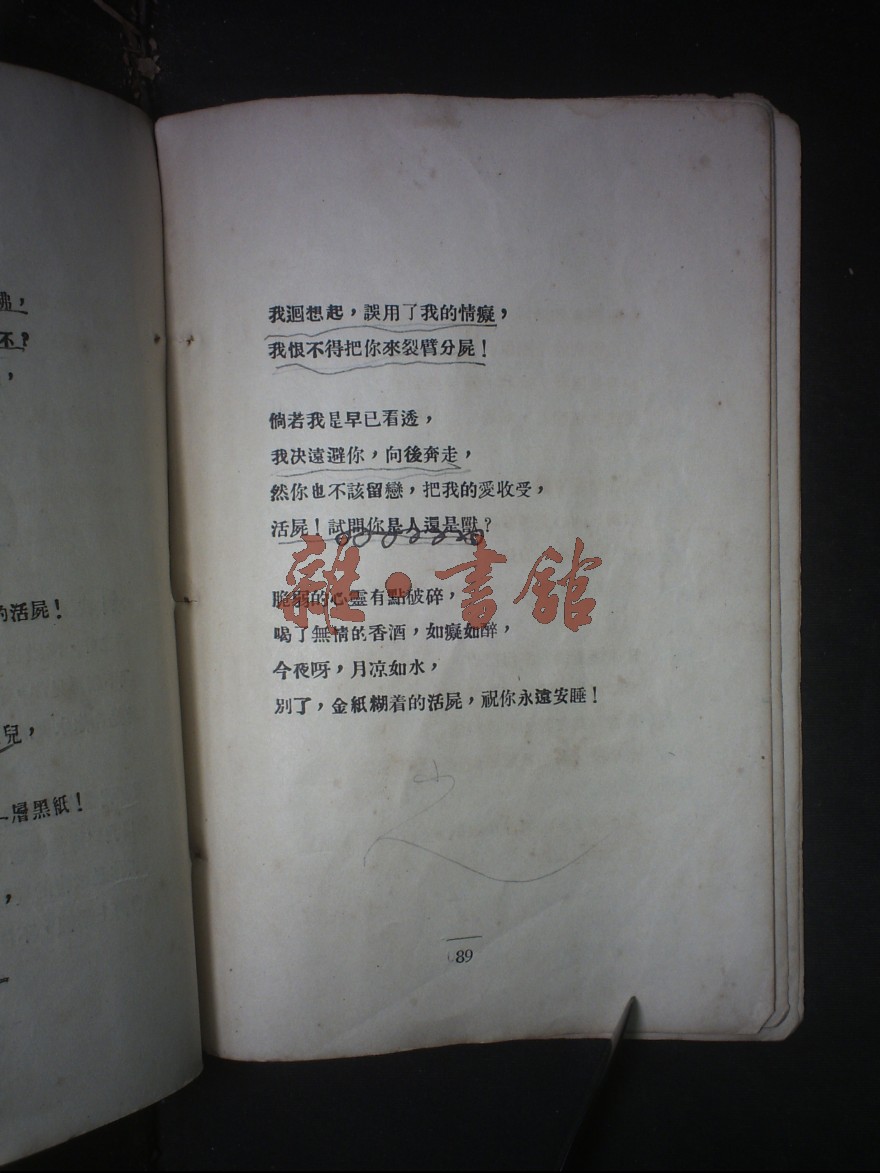 不？
的活屍！
兒，
一層黑紙！
我迴想起，誤用了我的情癡，
我恨不得把你來裂臂分屍！
倘若我是早已看透，
我決遠避你，向後奔走，
然你也不該留戀，把我的愛收受，
活屍！試問你是人還是獸？
脆弱的心靈有點破碎，
喝了無情的香酒，如癡如醉，
今夜呀，月凉如水，
別了，金紙糊着的活屍，祝你永遠安睡！
89
雜·書館